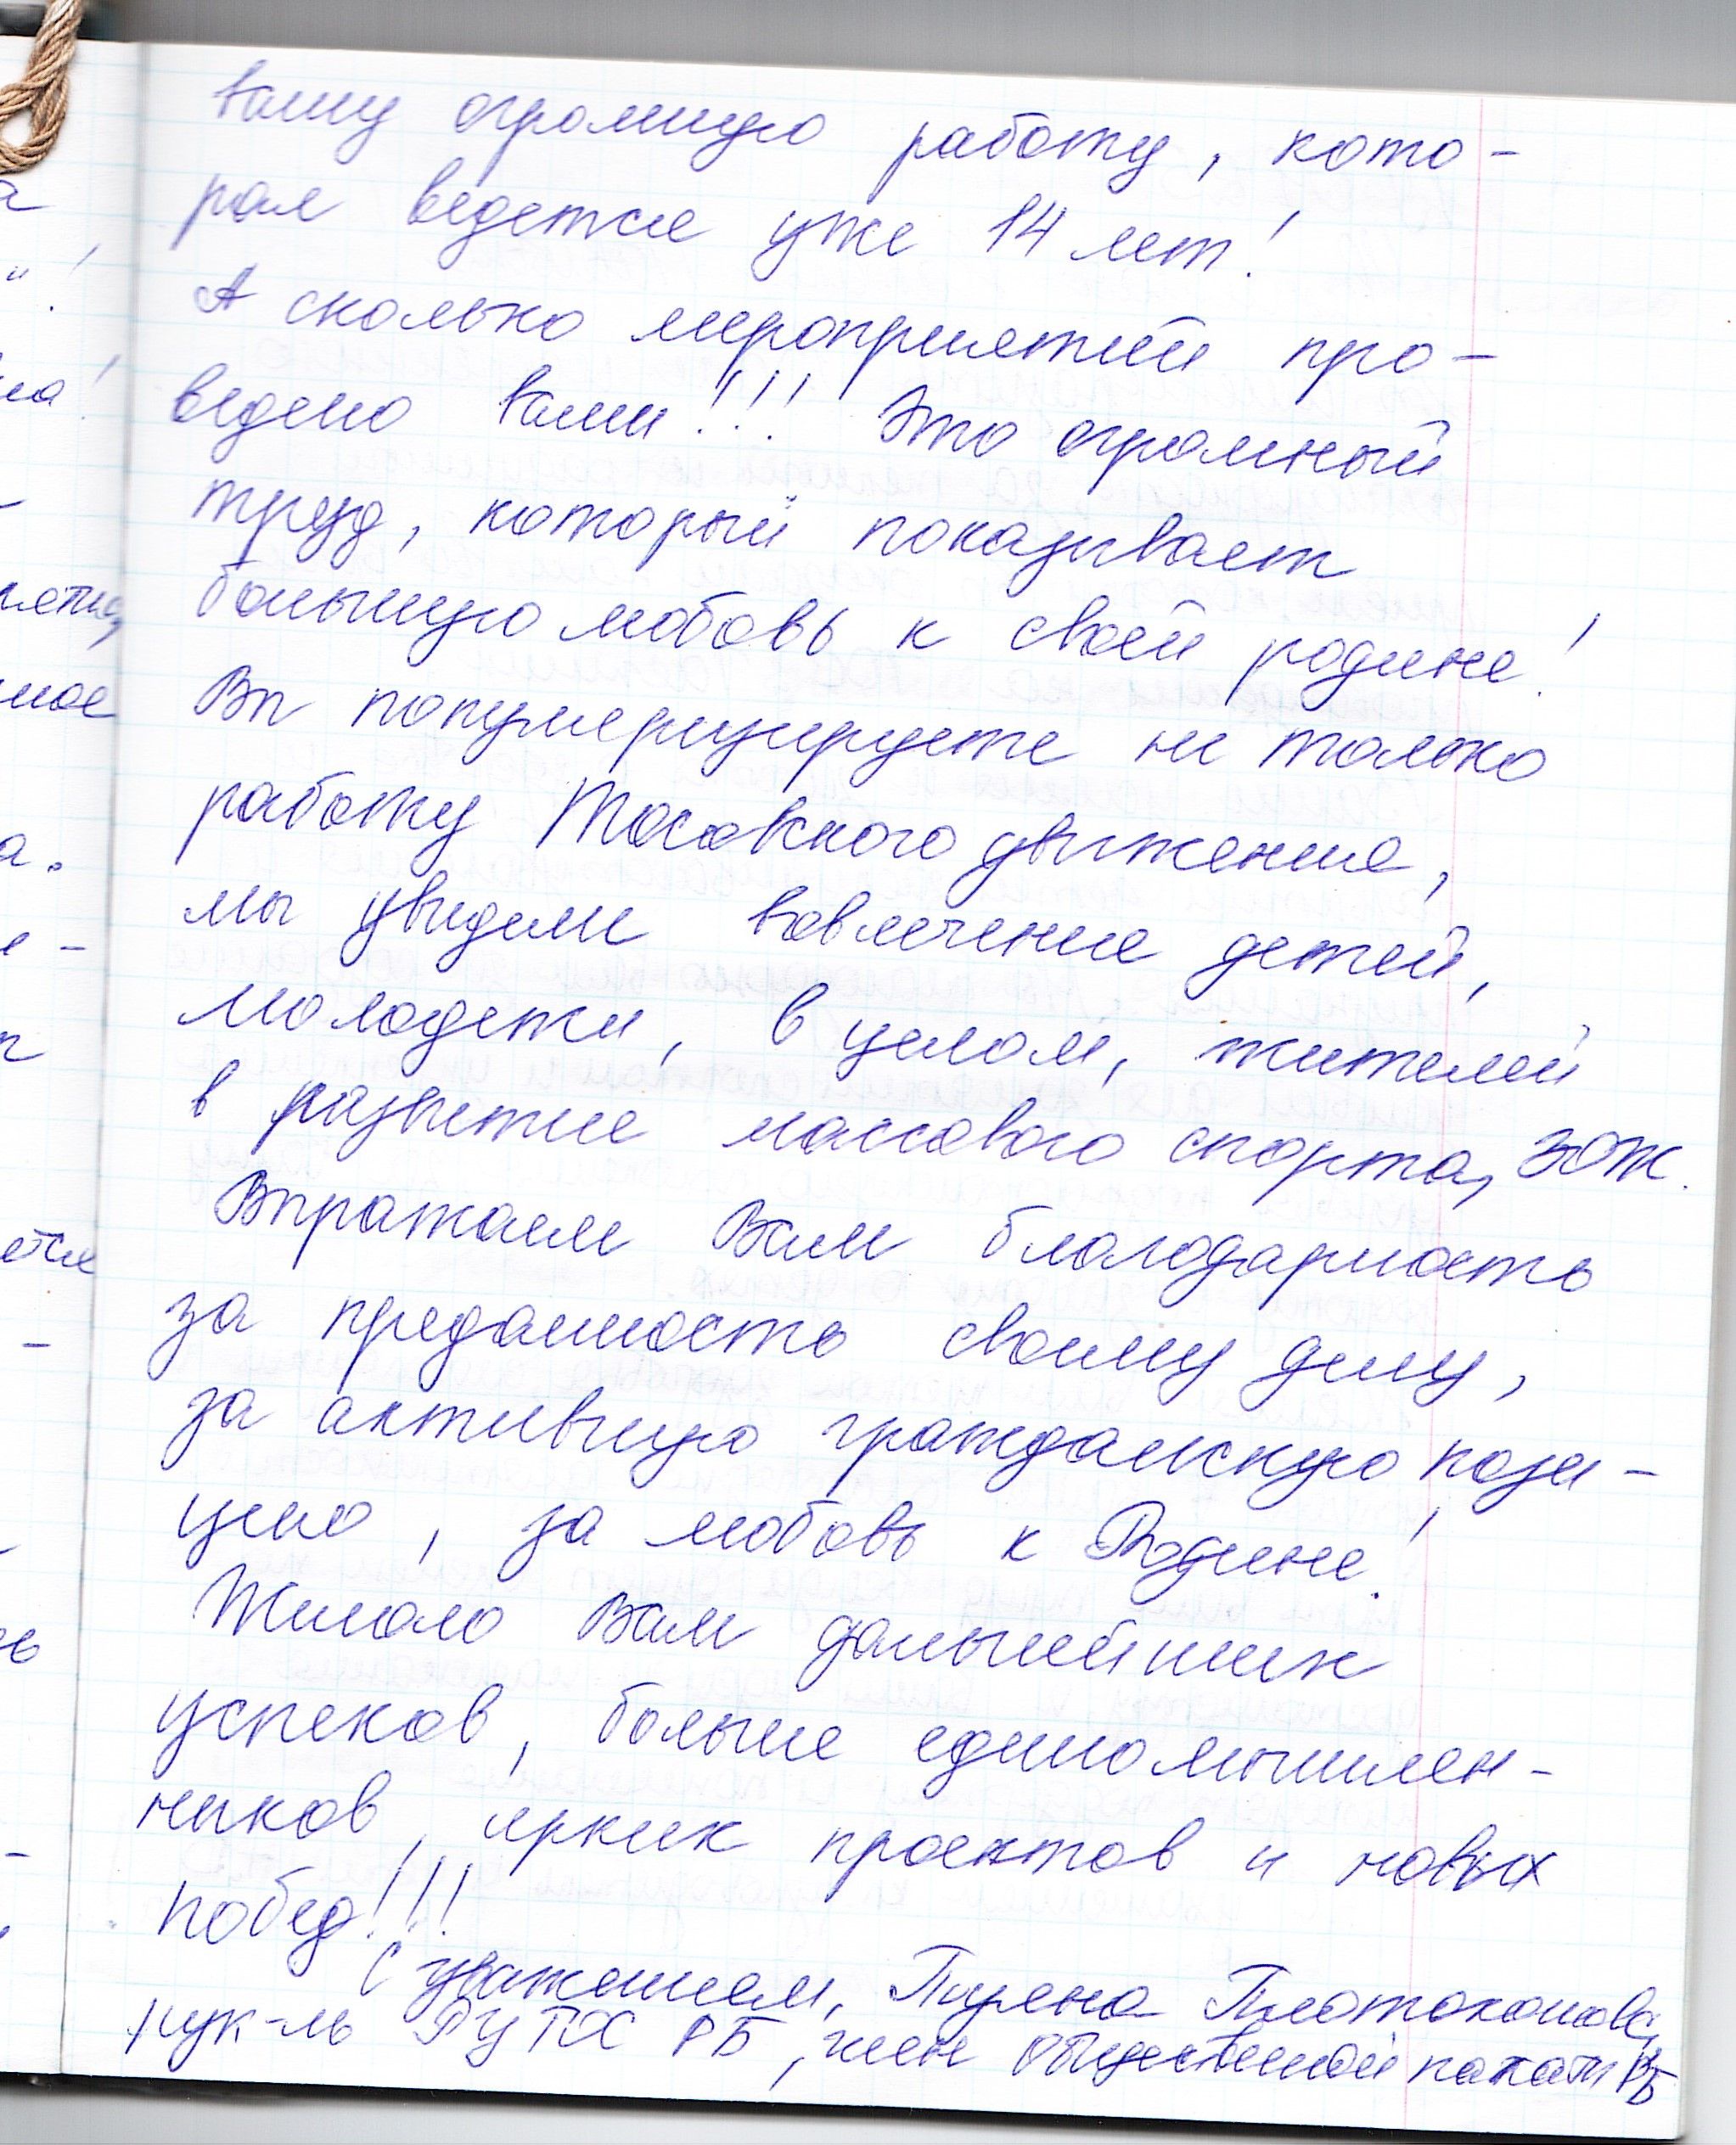 вашу огромную работу, кото-
рая ведется уже 14 лет!
А сколько мероприятий про-
ведено вами!!! Это огромный
труд, который показывает
большую любовь к своей родине!
Вы популяризируете не только
работу ТОСовского движения,
мы увидели вовлечение детей,
молодежи, в целом, жителей
в развитие массового спорта, ЗОЖ.
Выражаем Вам благодарность
за преданность своему делу,
за активную гражданскую пози-
цию, за любовь к Родине!
Желаю Вам дальнейших
успехов, больше единомышлен-
ников, ярких проектов и новых
побед!!!
С уважением,
рук-ль РБ, член Общественной палаты РБ